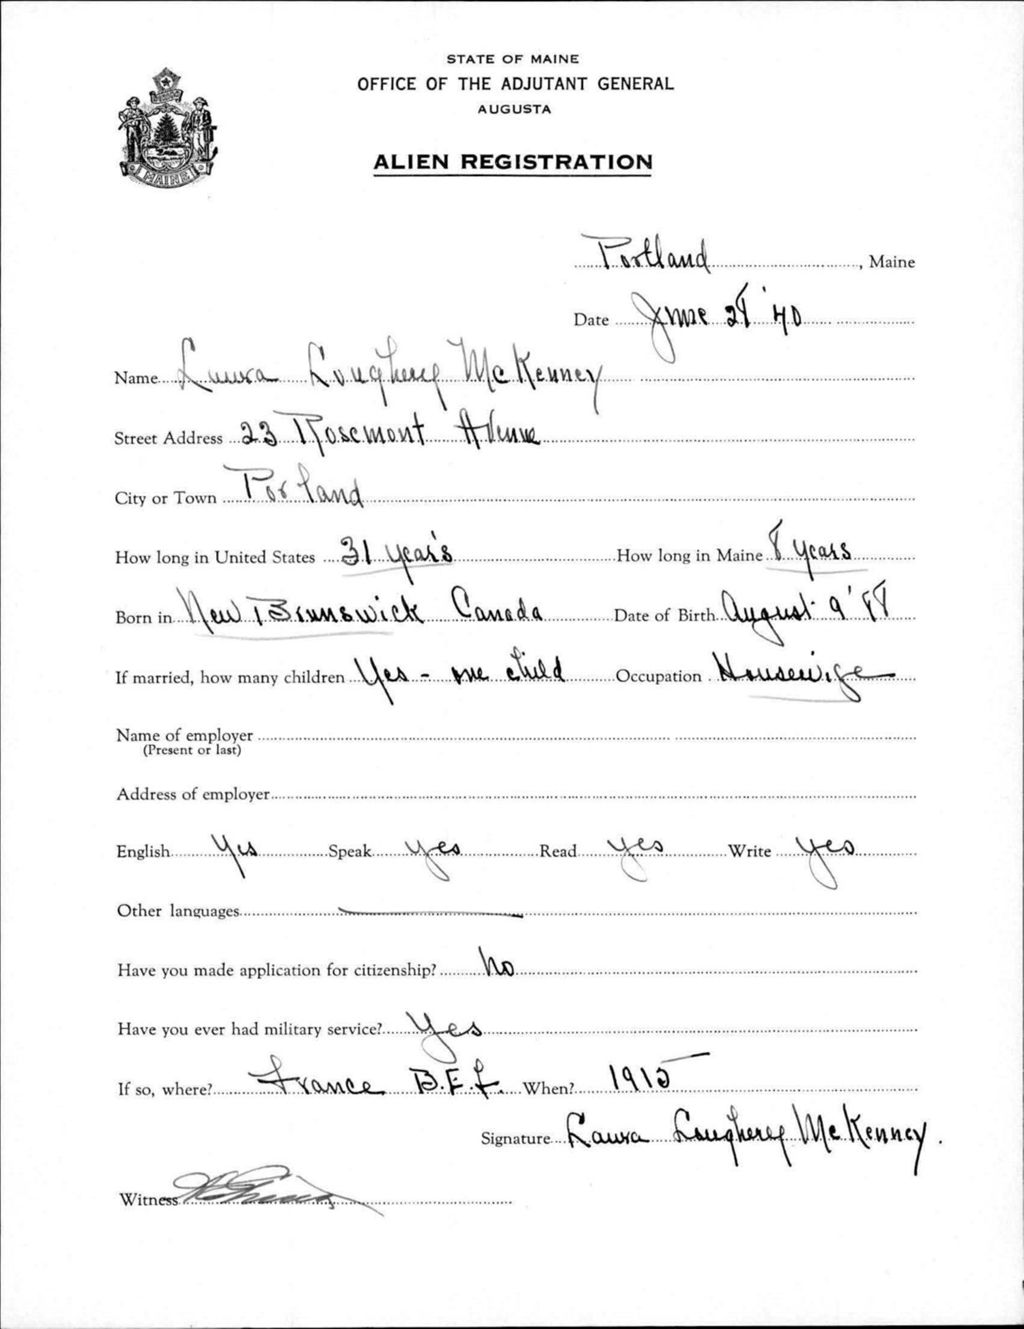 STATE OF MAINE
OFFICE OF THE ADJUTANT GENERAL
AUGUSTA
ALIEN REGISTRATION
MAINE
Portland, Maine
Date June 28 '40
Name Laura Lougherey McKenney
Street Address 23 Rosemont Avenue
City or Town Portland
How long in United States 31 years How long in Maine 8 years
Born in New Brunswick Canada Date of Birth August 9 '88
If married, how many children Yes - one child Occupation Housewife
Name of employer
(Present or last)
Address of employer
English Yes Speak yes Read yes Write yes
Other languages
Have you made application for citizenship? No
Have you ever had military service? Yes
If so, where? France B.E.F. When? 1915
Signature Laura Lougherey McKenney.
Witness